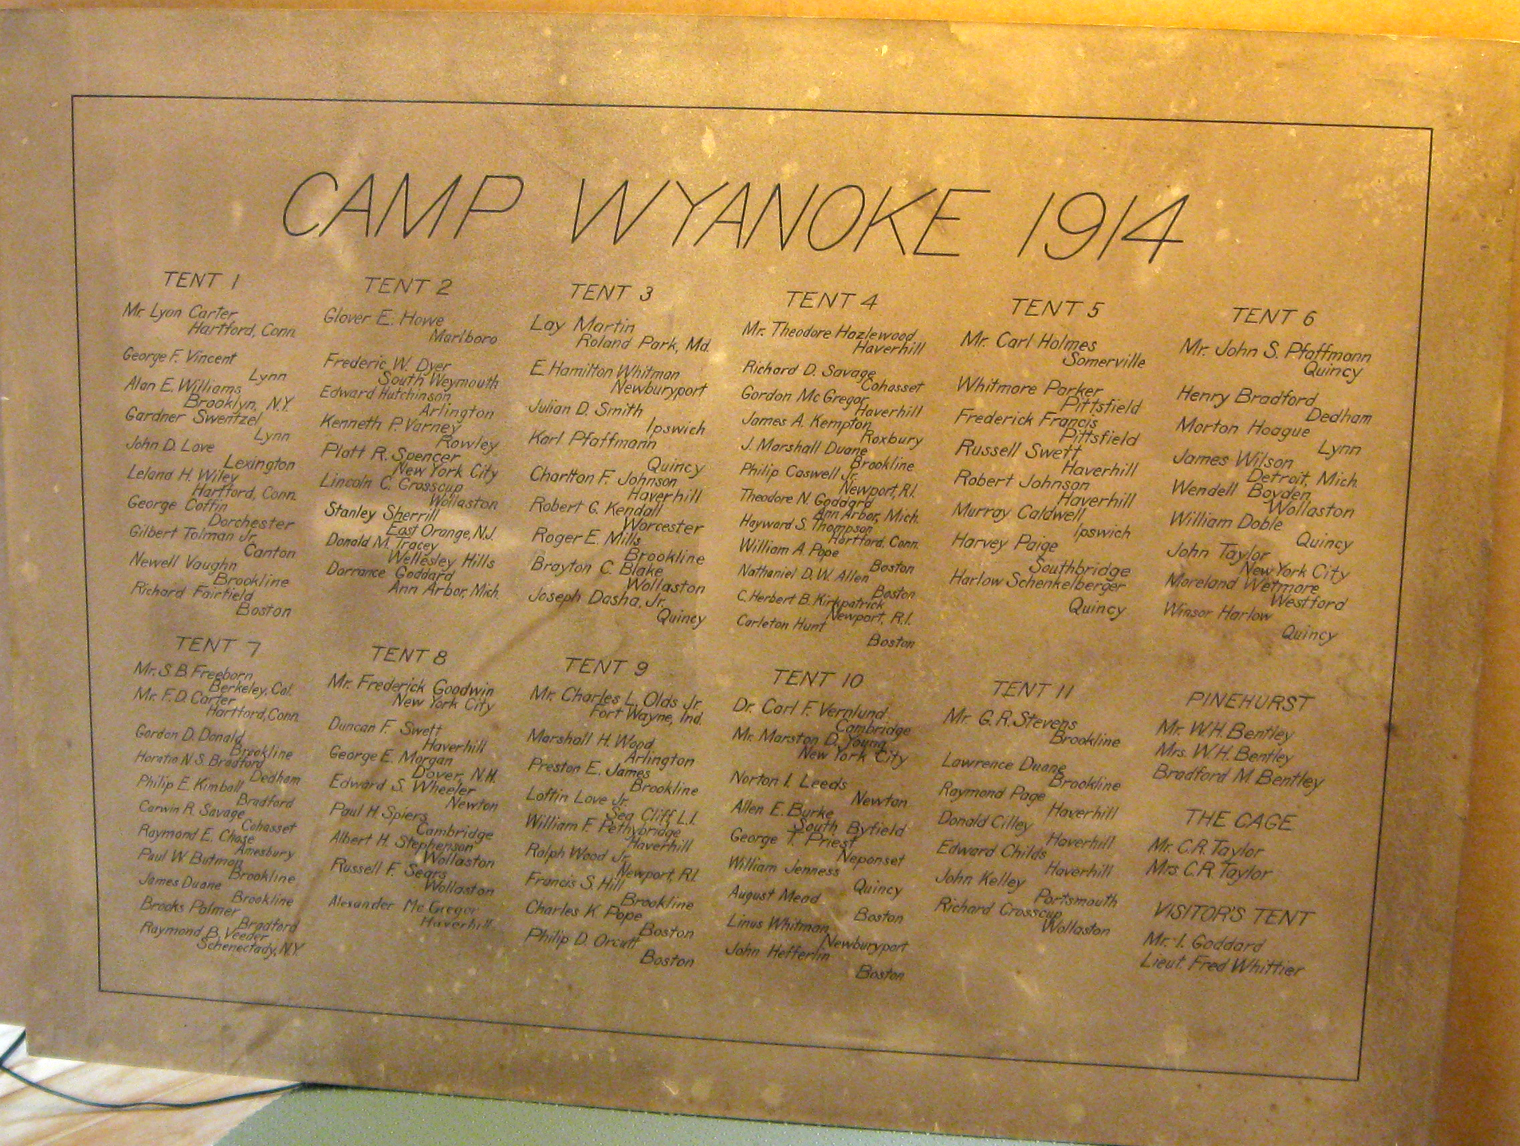 CAMP WYANOKE 1914
TENT 1
Mr. Lyon Carter
Hartford, Conn.
George F. Vincent
Lynn
Alan E. Williams
Brooklyn, N.Y.
Gardner Swentzel
Lynn
John D. Love
Lexington
Leland H. Wiley
Hartford, Conn.
George Coffin
Dorchester
Gilbert Tolman Jr.
Canton
Newell Vaughn
Brookline
Richard Fairfield
Boston
TENT 2
Glover E. Howe
Marlboro
Frederic W. Dyer
South Weymouth
Edward Hutchinson
Arlington
Kenneth P. Varney
Rowley
Platt R. Spencer
New York City
Lincoln C. Crosscup
Wollaston
Stanley Sherrill
East Orange, N.J.
Donald M. Tracey
Wellesley Hills
Dorrance Goddard
Ann Arbor, Mich.
TENT 3
Lay Martin
Roland Park, Md.
E. Hamilton Whitman
Newburyport
Julian D. Smith
Ipswich
Karl Pfaffmann
Quincy
Charlton F. Johnson
Haverhill
Robert G. Kendall
Worcester
Roger E. Mills
Brookline
Brayton C. Blake
Wollaston
Joseph Dasha, Jr.
Quincy
TENT 4
Mr. Theodore Hazlewood
Haverhill
Richard D. Savage
Cohasset
Gordon McGregor
Haverhill
James A. Kempton
Roxbury
J. Marshall Duane
Brookline
Philip Caswell Jr.
Newport, R.I.
Theodore N. Goddard
Ann Arbor, Mich.
Hayward S. Thompson
Hartford, Conn.
William A. Pope
Boston
Nathaniel D.W. Allen
Boston
C. Herbert B. Kirkpatrick
Newport, R.I.
Carleton Hunt
Boston
TENT 5
Mr. Carl Holmes
Somerville
Whitmore Parker
Pittsfield
Frederick Francis
Pittsfield
Russell Swett
Haverhill
Robert Johnson
Haverhill
Murray Caldwell
Ipswich
Harvey Paige
Southbridge
Harlow Schenkelberger
Quincy
TENT 6
Mr. John S. Pfaffmann
Quincy
Henry Bradford
Dedham
Morton Hoague
Lynn
James Wilson
Detroit, Mich.
Wendell Boyden
Wollaston
William Doble
Quincy
John Taylor
New York City
Moreland Wetmore
Westford
Winsor Harlow
Quincy
TENT 7
Mr. S.B. Freeborn
Berkeley, Cal.
Mr. F.D. Carter
Hartford, Conn.
Gordon D. Donald
Brookline
Horatio N.S. Bradford
Dedham
Philip E. Kimball
Bradford
Corwin R. Savage
Cohasset
Raymond E. Chase
Amesbury
Paul W. Butman
Brookline
James Duane
Brookline
Brooks Palmer
Bradford
Raymond B. Veeder
Schenectady, N.Y.
TENT 8
Mr. Frederick Goodwin
New York City
Duncan F. Swett
Haverhill
George E. Morgan
Dover, N.H.
Edward S. Wheeler
Newton
Paul H. Spiers
Cambridge
Albert H. Stephenson
Wollaston
Russell F. Sears
Wollaston
Alexander McGregor
Haverhill
TENT 9
Mr. Charles L. Olds Jr.
Fort Wayne, Ind.
Marshall H. Wood
Arlington
Preston E. James
Brookline
Loftin Love Jr.
Sea Cliff L.I.
William F. Pethybridge
Haverhill
Ralph Wood Jr.
Newport, R.I.
Francis S. Hill
Brookline
Charles K. Pope
Boston
Philip D. Orcutt
Boston
TENT 10
Dr. Carl F. Vernlund
Cambridge
Mr. Marston D. Young
New York City
Norton I. Leeds
Newton
Allen E. Burke
South Byfield
George T. Priest
Neponset
William Jenness
Quincy
August Mead
Boston
Linus Whitman
Newburyport
John Hefferlin
Boston
TENT 11
Mr. G.R. Stevens
Brookline
Lawrence Duane
Brookline
Raymond Page
Haverhill
Donald Cilley
Haverhill
Edward Childs
Haverhill
John Kelley
Portsmouth
Richard Crosscup
Wollaston
PINEHURST
Mr. W.H. Bentley
Mrs. W.H. Bentley
Bradford M. Bentley
THE CAGE
Mr. C.R. Taylor
Mrs. C.R. Taylor
VISITOR'S TENT
Mr. I. Goddard
Lieut. Fred Whittier